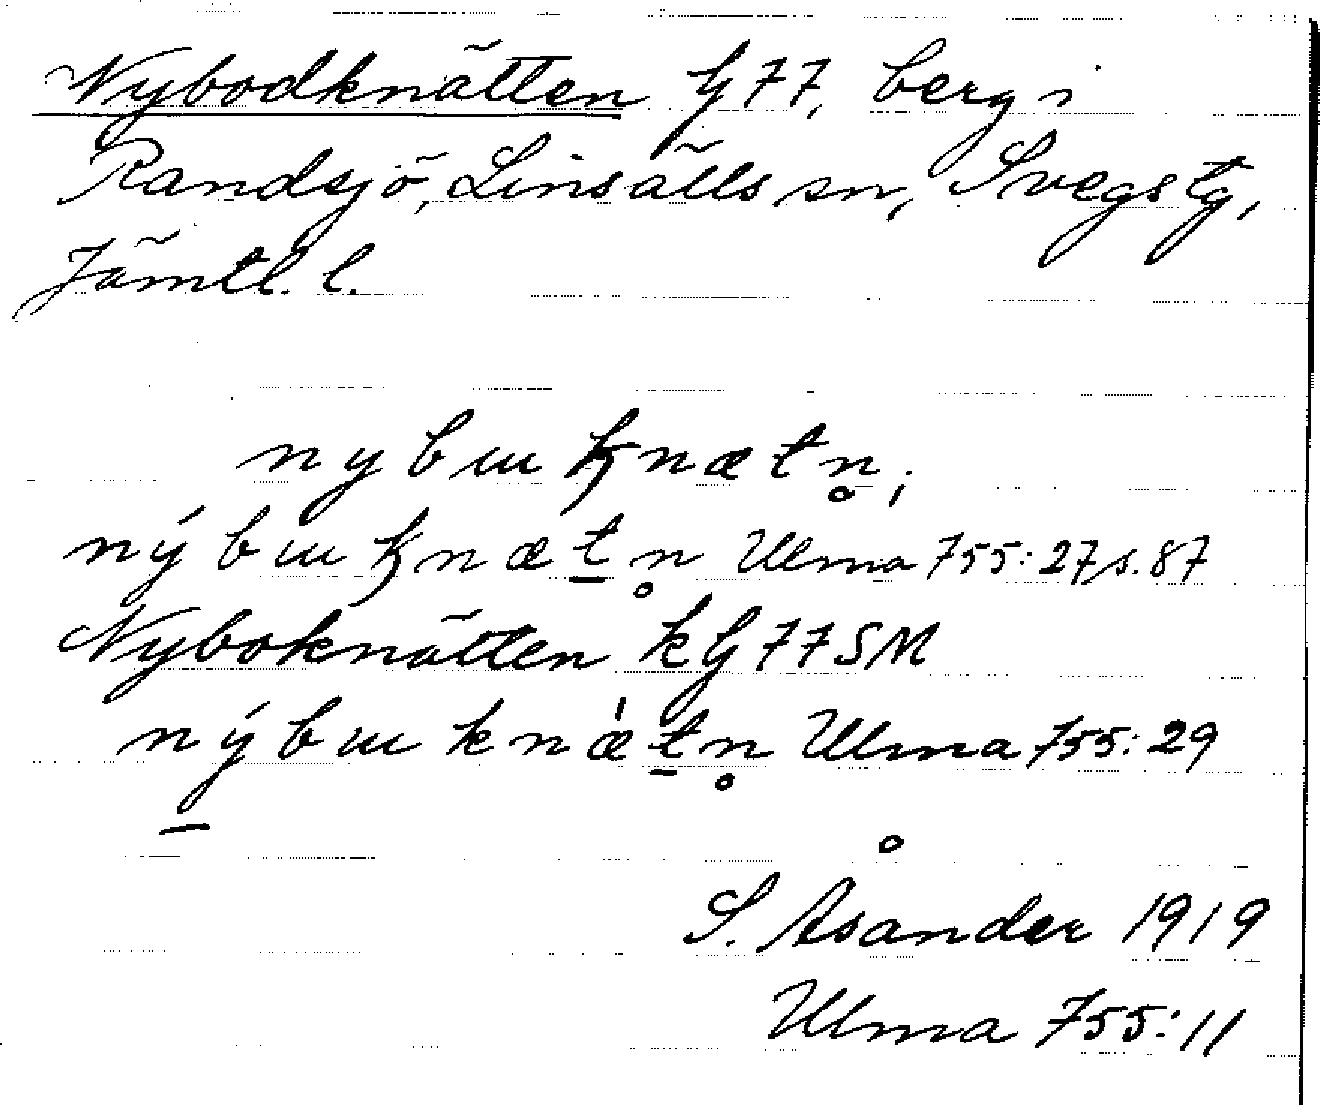 Nybodknätten G77, berg i
Randsjö, Linsälls sn, Svegs tg,
Jämtl. l.
nybɯꞣnætn̥,
nýbɯꞣnæt̲n̥ Ulma 755:27 s. 87
Nyboknätten k G77SM
ný̲bɯknǽt̲n̥ Ulma 755:29
S. Åsander 1919
Ulma 755:11